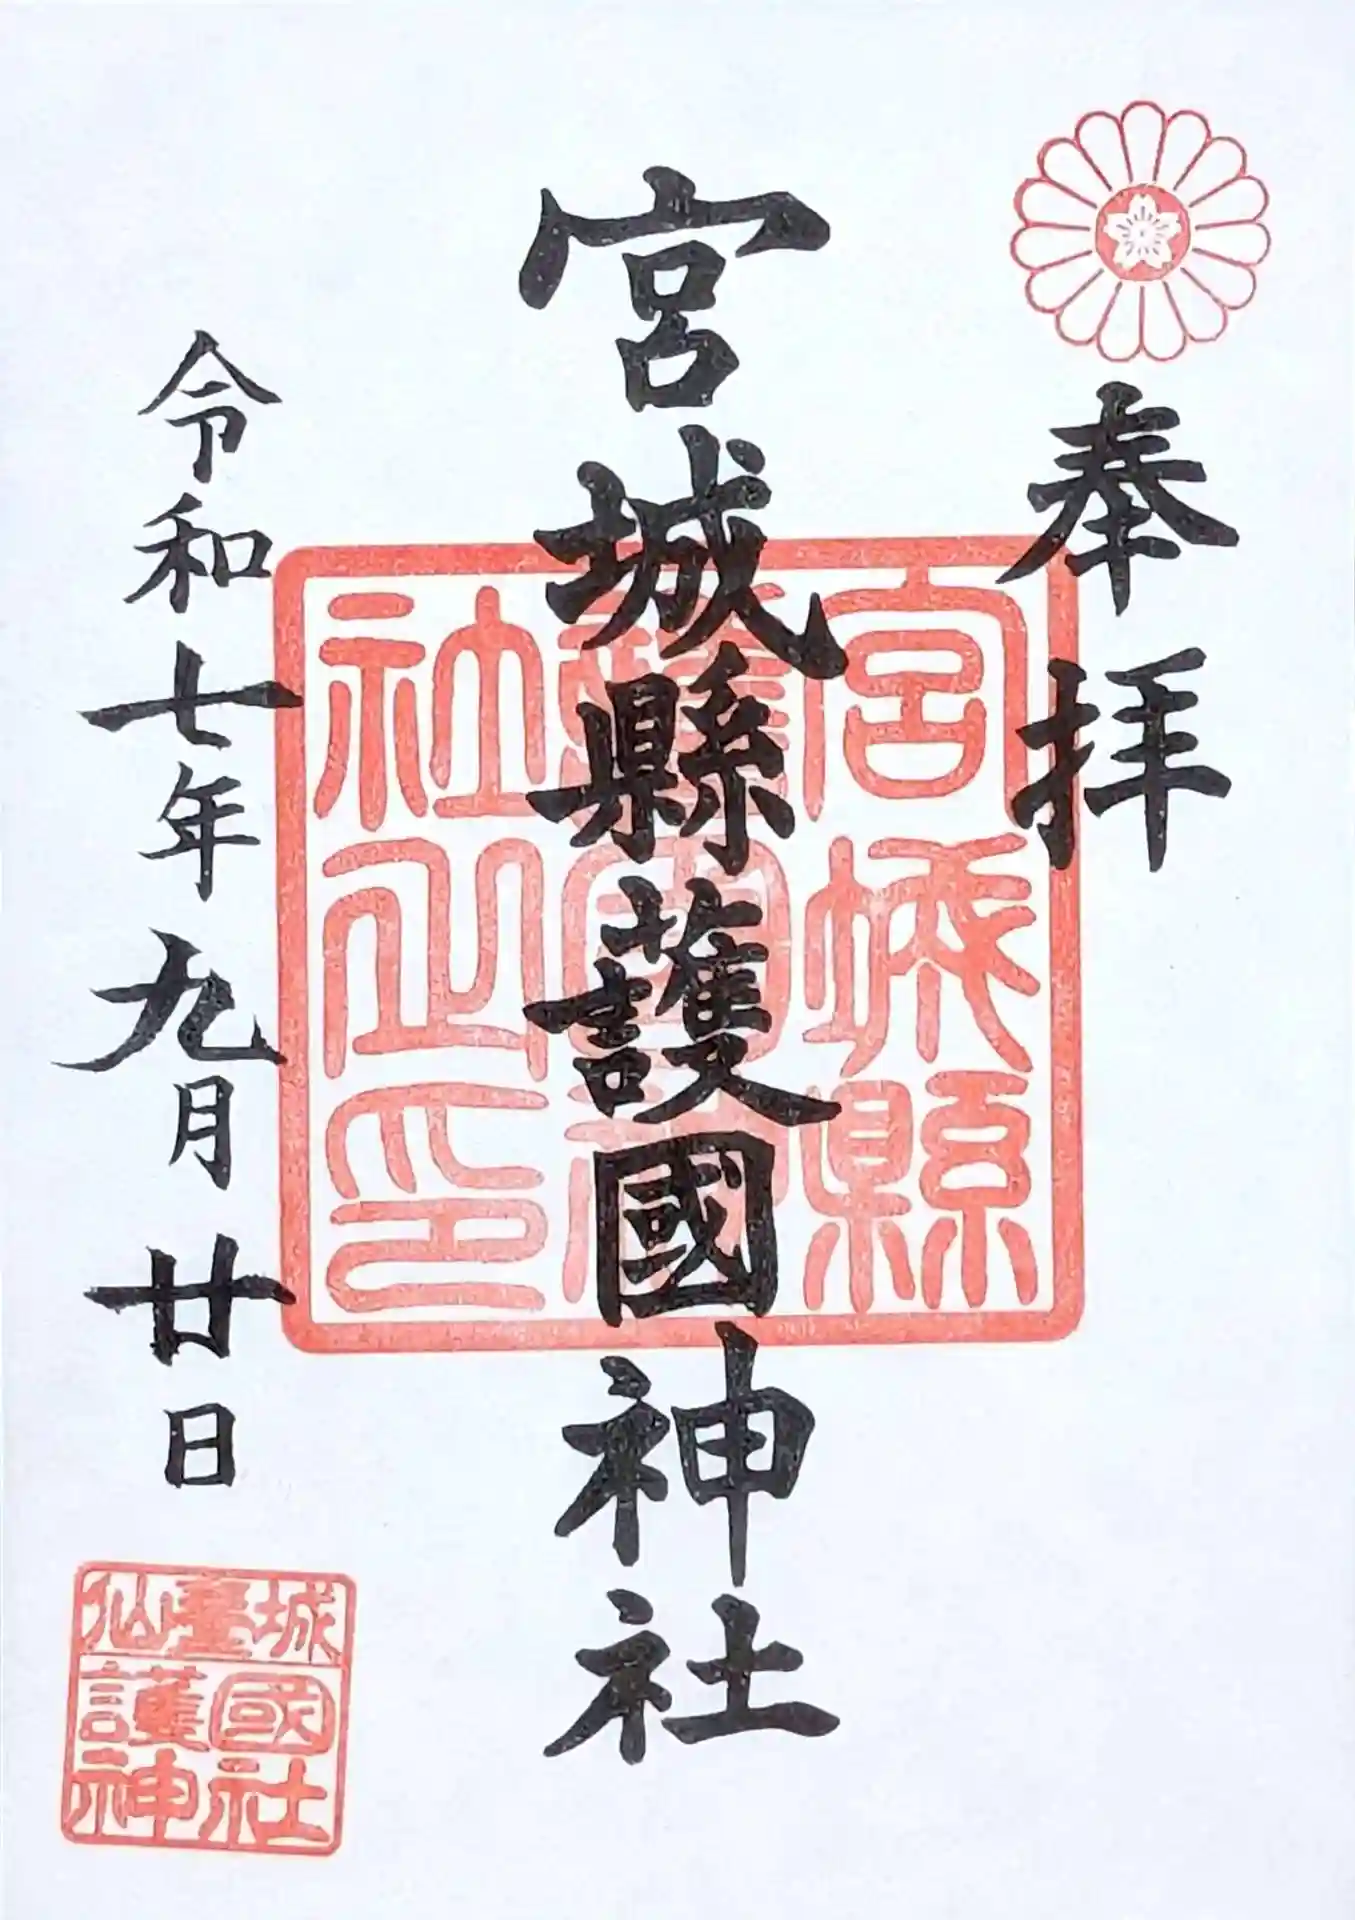 奉拝
宮城縣護國神社
令和七年九月廿日
宮城縣
護國神
社之印
仙臺城
護國
神社